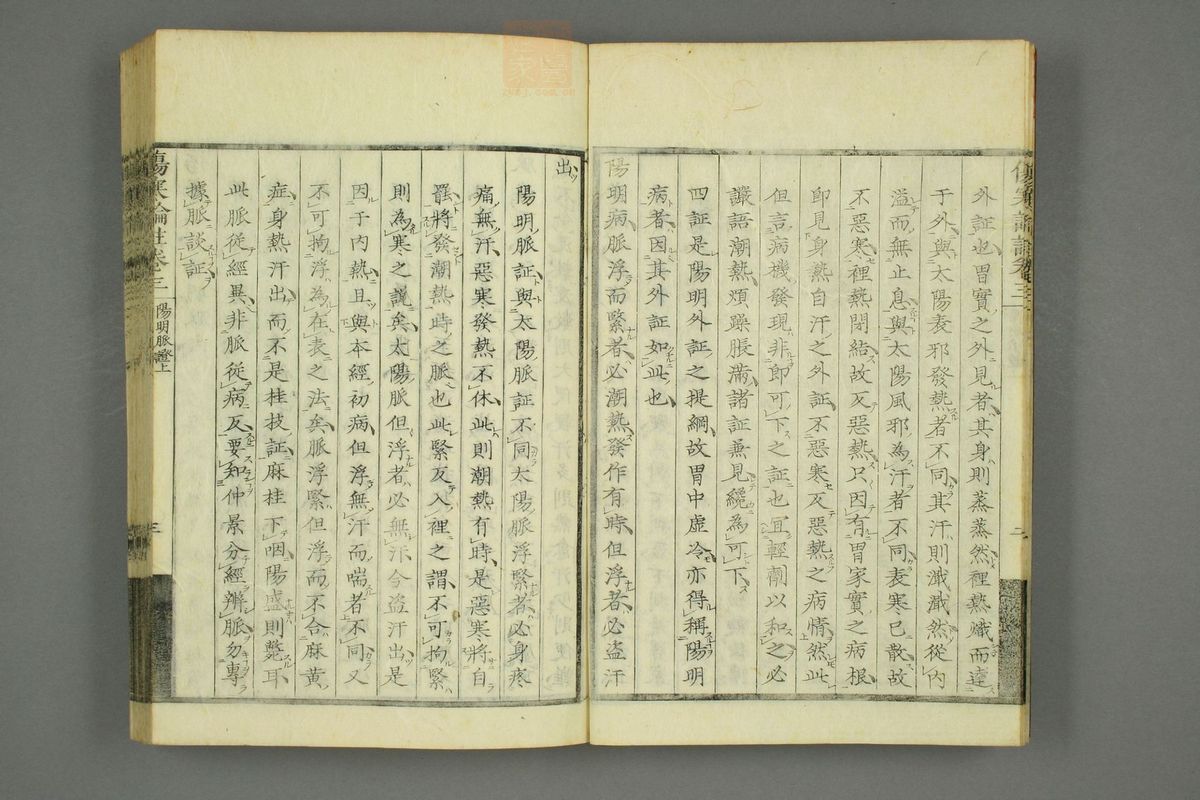 外証也胃實之外見者其身則蒸蒸然裡熱熾而達
于外與太陽表邪發熱者不同其汗則濈濈然從內
溢而無止息與太陽風邪為汗者不同表寒已散故
不惡寒裡熱閉結故反惡熱只因有胃家實之病根
即見身熱自汗之外証不惡寒反惡熱之病情然此
但言病機發現非即可下之証也宜輕劑以和之必
讝語潮熱煩躁脹滿諸証兼見纔為可下
四証是陽明外証之提綱故胃中虛冷亦得稱陽明
病者因其外証如此也
陽明病脈浮而緊者必潮熱發作有時但浮者必盜汗
出
陽明脈証與太陽脈証不同太陽脈浮緊者必身疼
痛無汗惡寒發熱不休此則潮熱有時是惡寒將自
罷將發潮熱時之脈也此緊反入裡之謂不可拘緊
則為寒之說矣太陽脈但浮者必無汗今盜汗出是
因于內熱且與本經初病但浮無汗而喘者不同又
不可拘浮為在表之法矣脈浮緊但浮而不合麻黃
症身熱汗出而不是桂枝証麻桂下咽陽盛則斃耳
此脈從經異非脈從病反要知仲景分經辨脈勿專
據脈談証
傷寒論註卷三 陽明脈證上 三